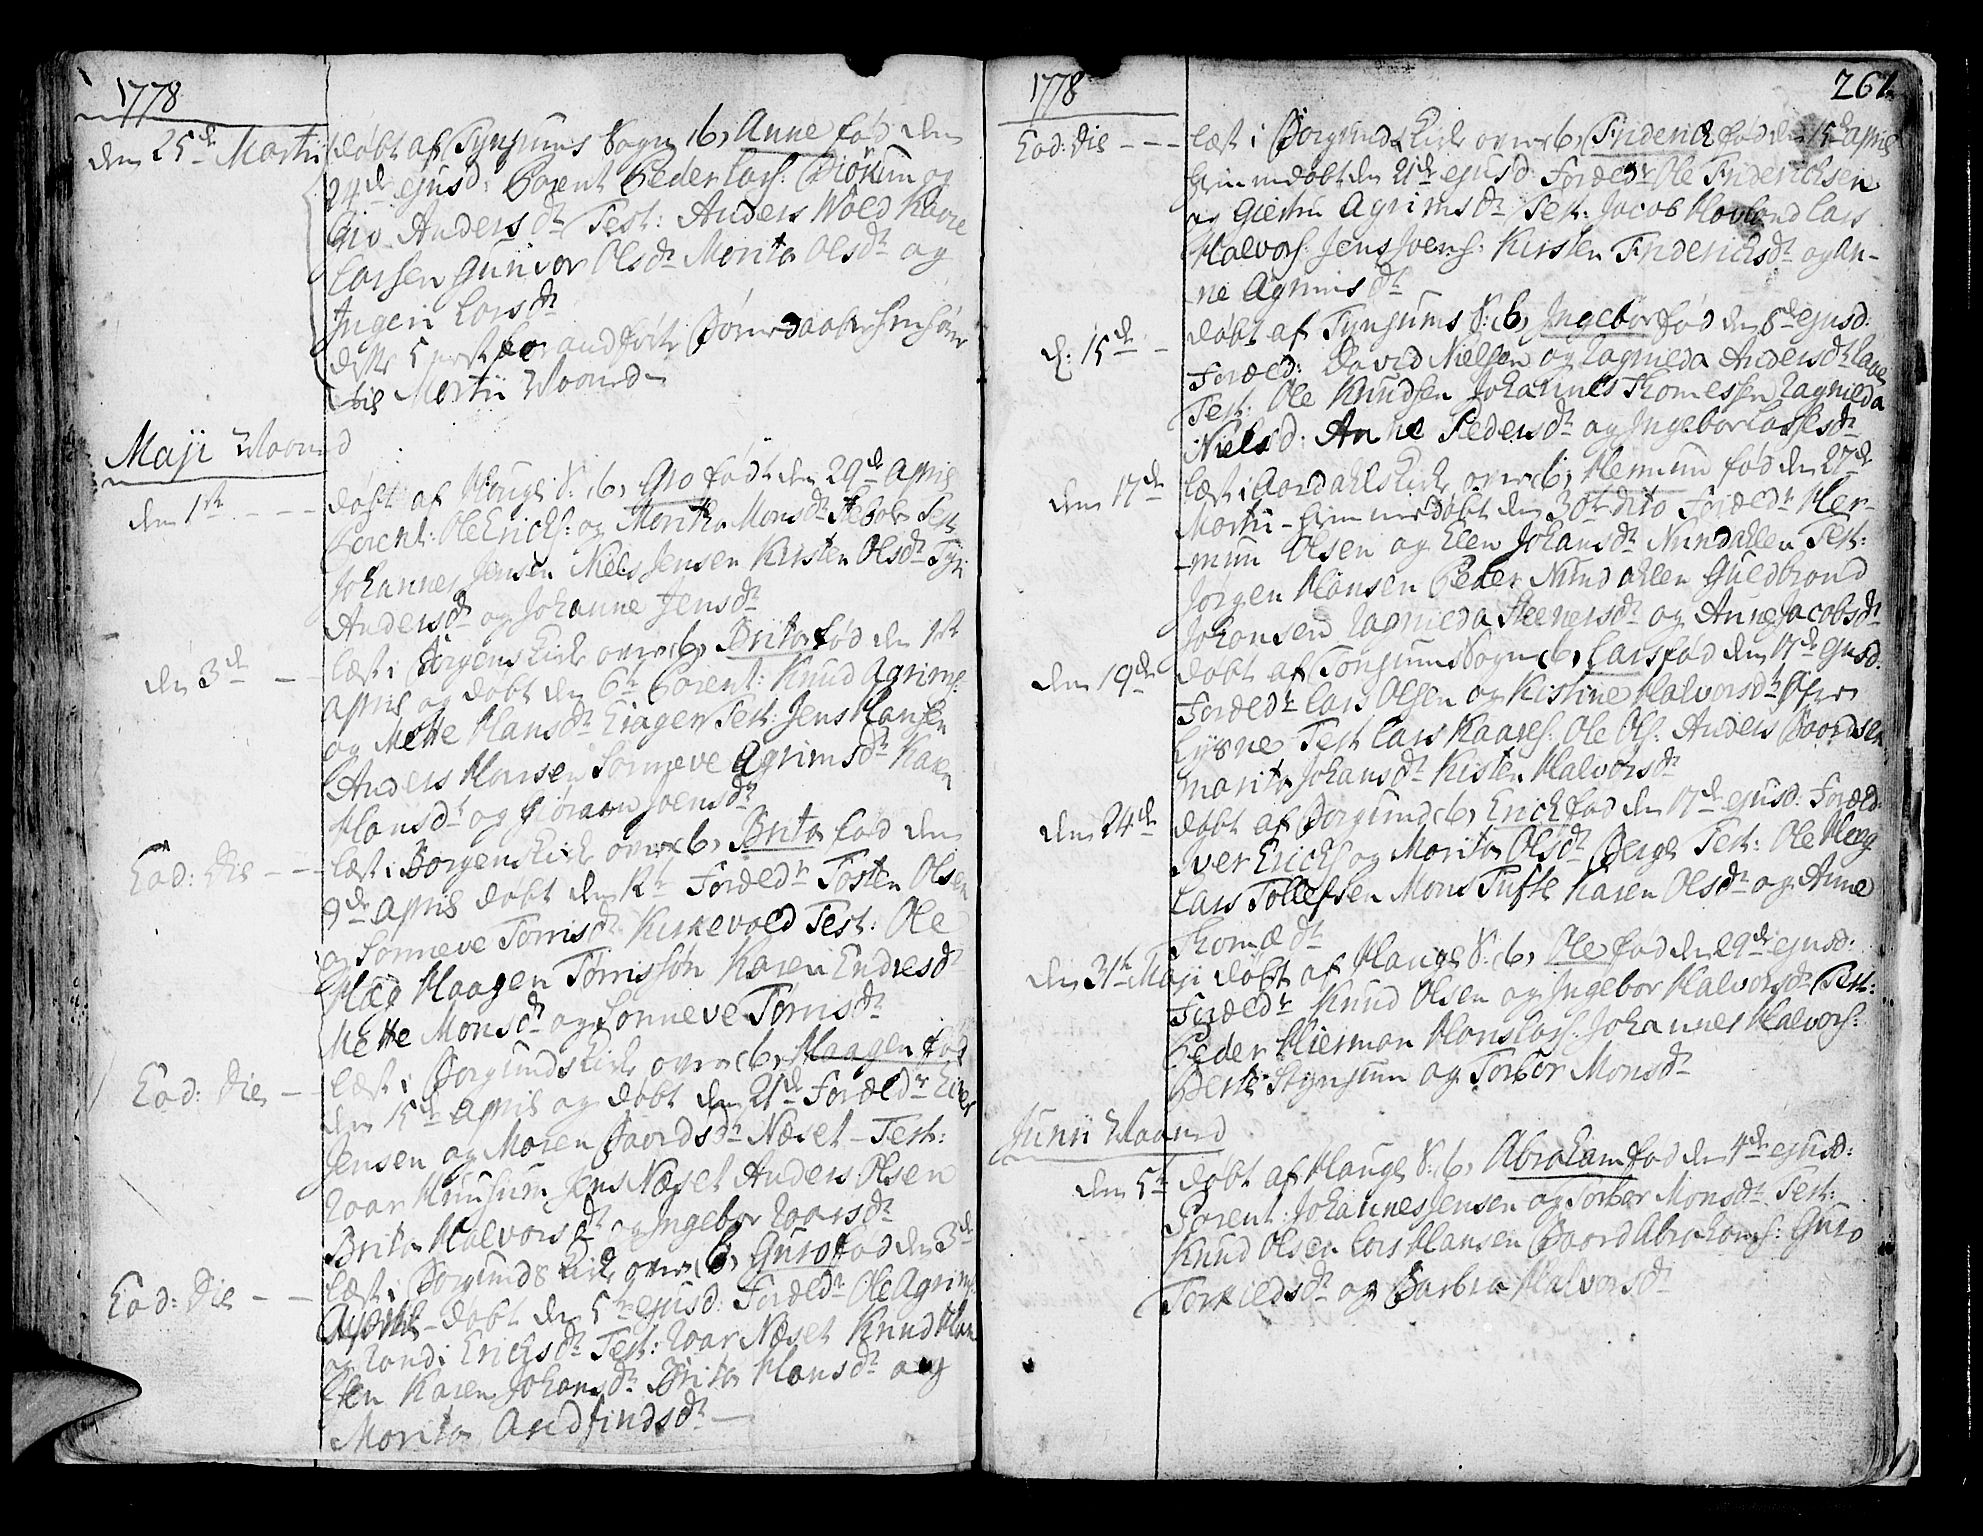 1778
den 25de Martii døbt af Tynjums Sogn (b, Anne fød den
24de ejusd: Parent Peder Lars: Biørkum og
Giø Anders dr Test: Anders Wold Kaare
Larsen Gunvor Olsdr Marita Olsdr og
Ingeri Larsdr
disse 5 næst for andførte Børnedaaber henhører
til Martii Maaned
Maji Maaned
den 1te - - - døbt af Hauge S: (b, Gro født den 29de April
Parent: Ole Erichs: og Maritha Monsdr Test:
Johannes Jensen Niels Jensen Kirsten Olsdr Tyri
Andersdr og Johanne Jensdr
den 3de - - læst i Borgens Kirke over (b, Brita fød den 1te
April og døbt den 6te Parent: Knud Agrims:
og Mette Hansdr Test: Jens Hansen
Anders Hansen Sønneve Agrimsdr Karen
Hansdr og Giøraen Joensdr
Eod: Die - - læst i Borgens Kirke over (b, Brita fød den
9de April døbt den 12te Foræld: Tosten Olsen
og Sønneve Tørrisdr Kirkevold Test: Ole
Hæg Haagen Tørrissøn Karen Endresdr
Mette Monsdr og Sønneve Tørrisdr
Eod: Die - læst i Borgunds Kirke over (b, Haagen fød
den 15de April og døbt den 21de Foræld:
Jensen og Maren Baardsdr Næset - Test:
Roar Jens Næset Anders Olsen
Brita Halvorsdr og Ingebor Roarsdr
Eod: Die - - læst i Borgunds Kirke over (b, Guro fød den 3de
April - døbt den 5te ejusd: Foræld: Ole Agrims:
og Randi Erichsdr Test: Roar Næset Knud Han
sen Karen Johansdr Brita Hansdr og
Marita Andfindsdr -
1778 261
Eod: Die - - - læst i Borgunds Kirke over (b, Friderich fød den 15de April
hiemmedøbt den 21de ejusd: Foræld: Ole Friderichsen
og Giertru Agrimsdr Test: Jacob Hovland Lars
Halvors: Jens Joens: Kirsten Friderichsdr og An-
ne Agrimsdr
d: 15de - døbt af Tynjums S: (b, Ingebor fød den 8de ejusd:
Foræld: David Nielsen og Ragnilda Andersdr
Test: Ole Knudsen Johannes Thomessen Ragnilda
Nielsd: Anne Pedersdr og Ingebor Lassesdr
den 17de læst i Aardahls Kirke over (b, Hermun fød den 27de
Martii - hiemmedøbt den 30te dito Foræld: Her-
mun Olsen og Elen Johansdr Nundahlen Test:
Jørgen Hansen Peder Nundahlen Guldbrand
Johansen Ragnilda Steenersdr og Anne Jacobsdr
den 19de døbt af Tønjums Sogn (b, Lars fød den 17de ejusd:
Foræld: Lars Olsen og Kistine Halvorsdr Øfre
Lysne Test Lars Kaares: Ole Ols: Anders Baardsen
Marita Johansdr Kisten Halvorsdr
den 24de døbt af Borgund (b, Erich fød den 17de ejusd: Foræld:
Iver Erichs og Marita Olsdr Berge Test: Ole Hæg
Lars Tollefsen Mons Tufte Karen Olsdr og Anne
Thomædr
den 31te Maji døbt af Hauge S: (b, Ole fød den 29de ejusd:
Foræld: Knud Olsen og Ingebor Halvorsdr Test:
Peder Hierman Hans Lars: Johannes Halvors:
Berte Stynjum og Torbor Monsdr
Junii Maaned
den 5te døbt af Hauge S: (b, Abraham fød den 4de ejusd:
Parent: Johannes Jensen og Torbor Monsdr Test:
Knud Olsen Lars Hansen Baard Abrahams: Guro
Torkieldsdr og Barbra Halvorsdr